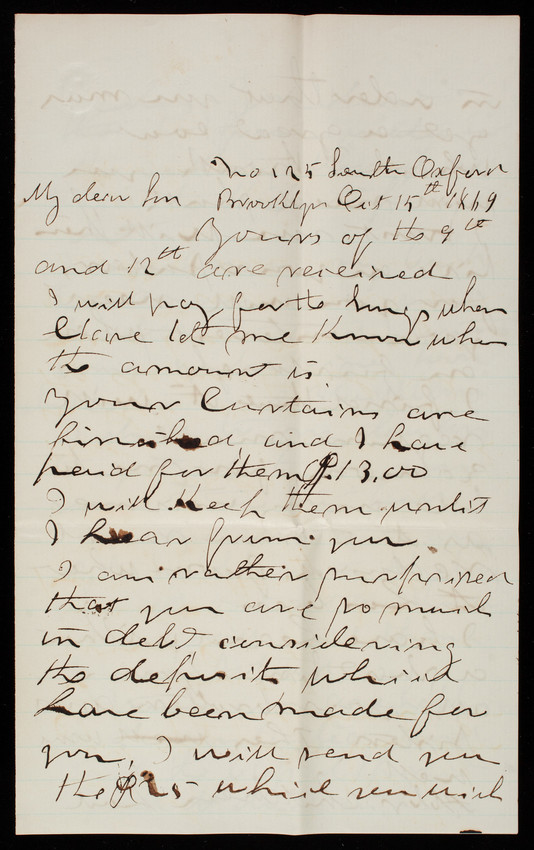 No 125 South Oxford
My dear Son Brooklyn Oct 15th 1869
Yours of the 9th
and 12th are received
I will pay for the when
let me know when
the amount is
Your Curtains are
finished and I have
paid for them $13.00
I will keep them untill
I hear from you
I am rather surprised
that you are so much
in debt considering
the deposits which
have been made for
you, I will send you
the $25 which you wish